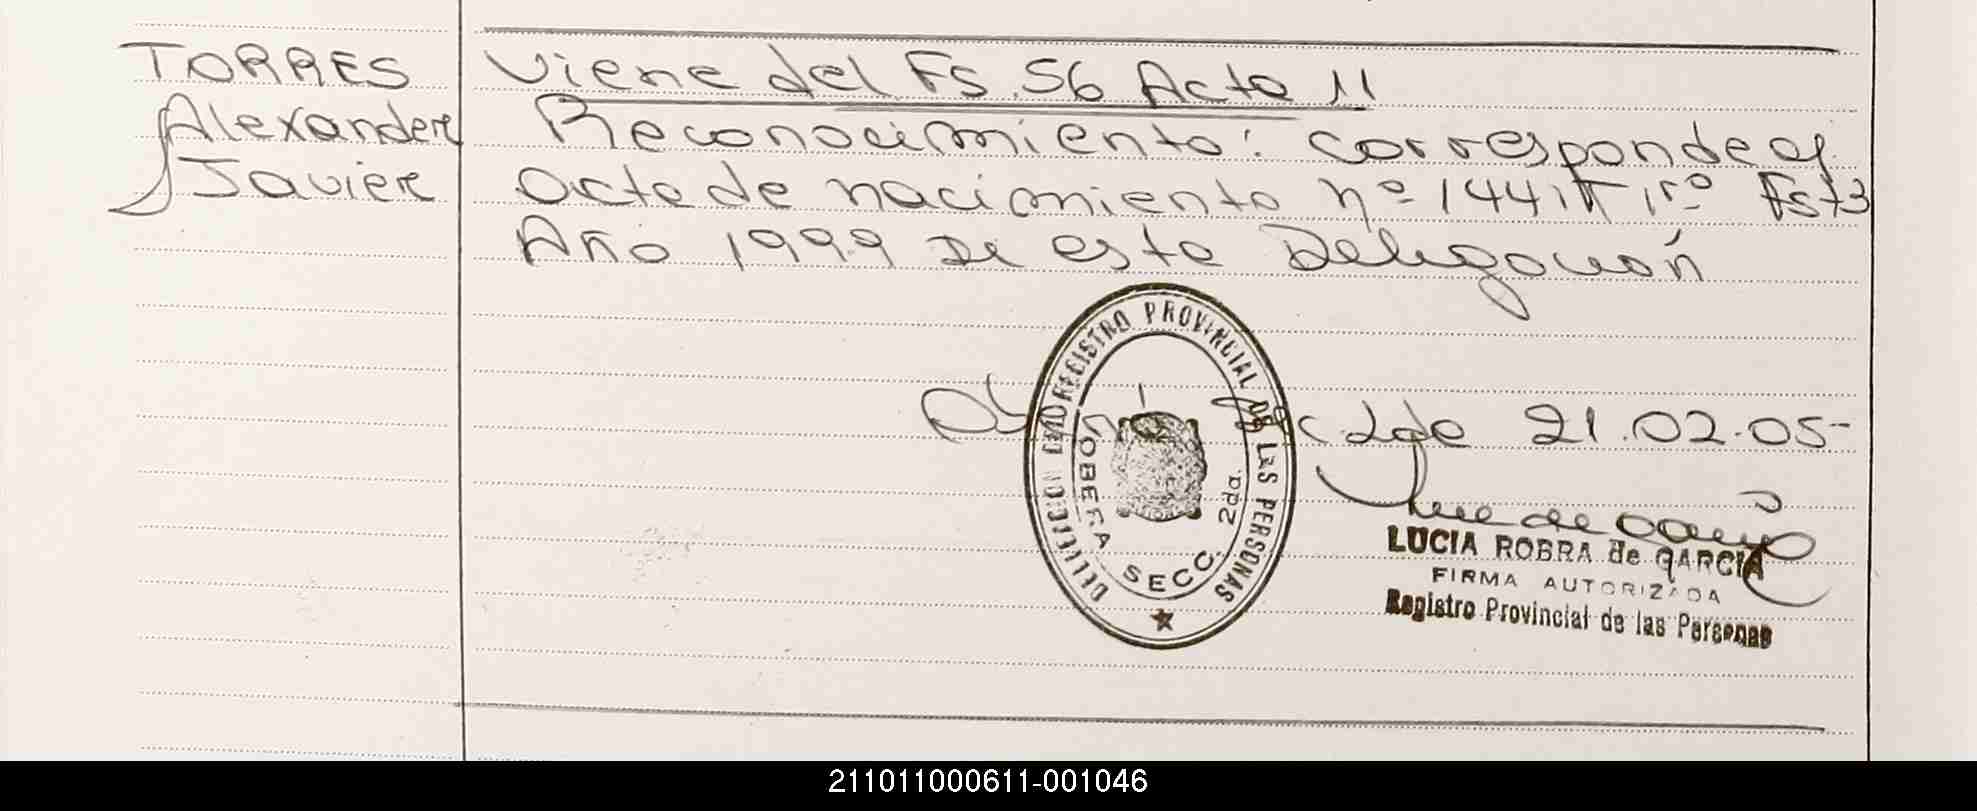 TORRES
Alexander
Javier
Viene del Fs. 56 Acta 11
Reconocimiento: corresponde al
acta de nacimiento nº 144 Tº Fs 73
Año 1999 De esta Delegación
21.02.05-
DELEGACION REGISTRO PROVINCIAL DE LAS PERSONAS
OBERA SECC. 2da.
LUCIA ROBRA de GARCIA
FIRMA AUTORIZADA
Registro Provincial de las Personas
211011000611-001046